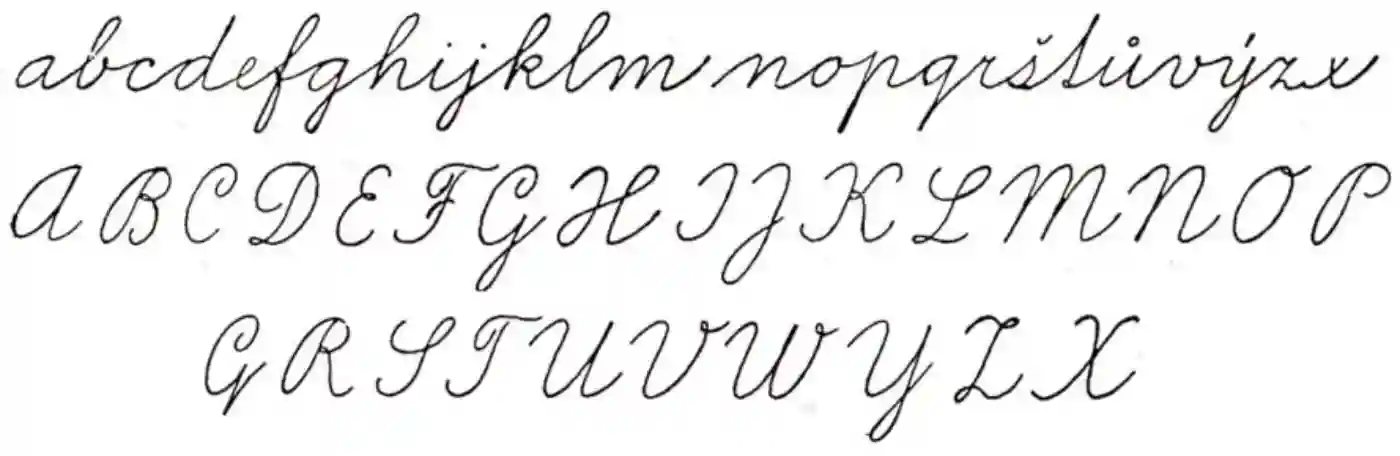 abcdefghijklm nopqrštůvýzx
ABCDEFGHIJKLMNOP
QRSTUVWYZX